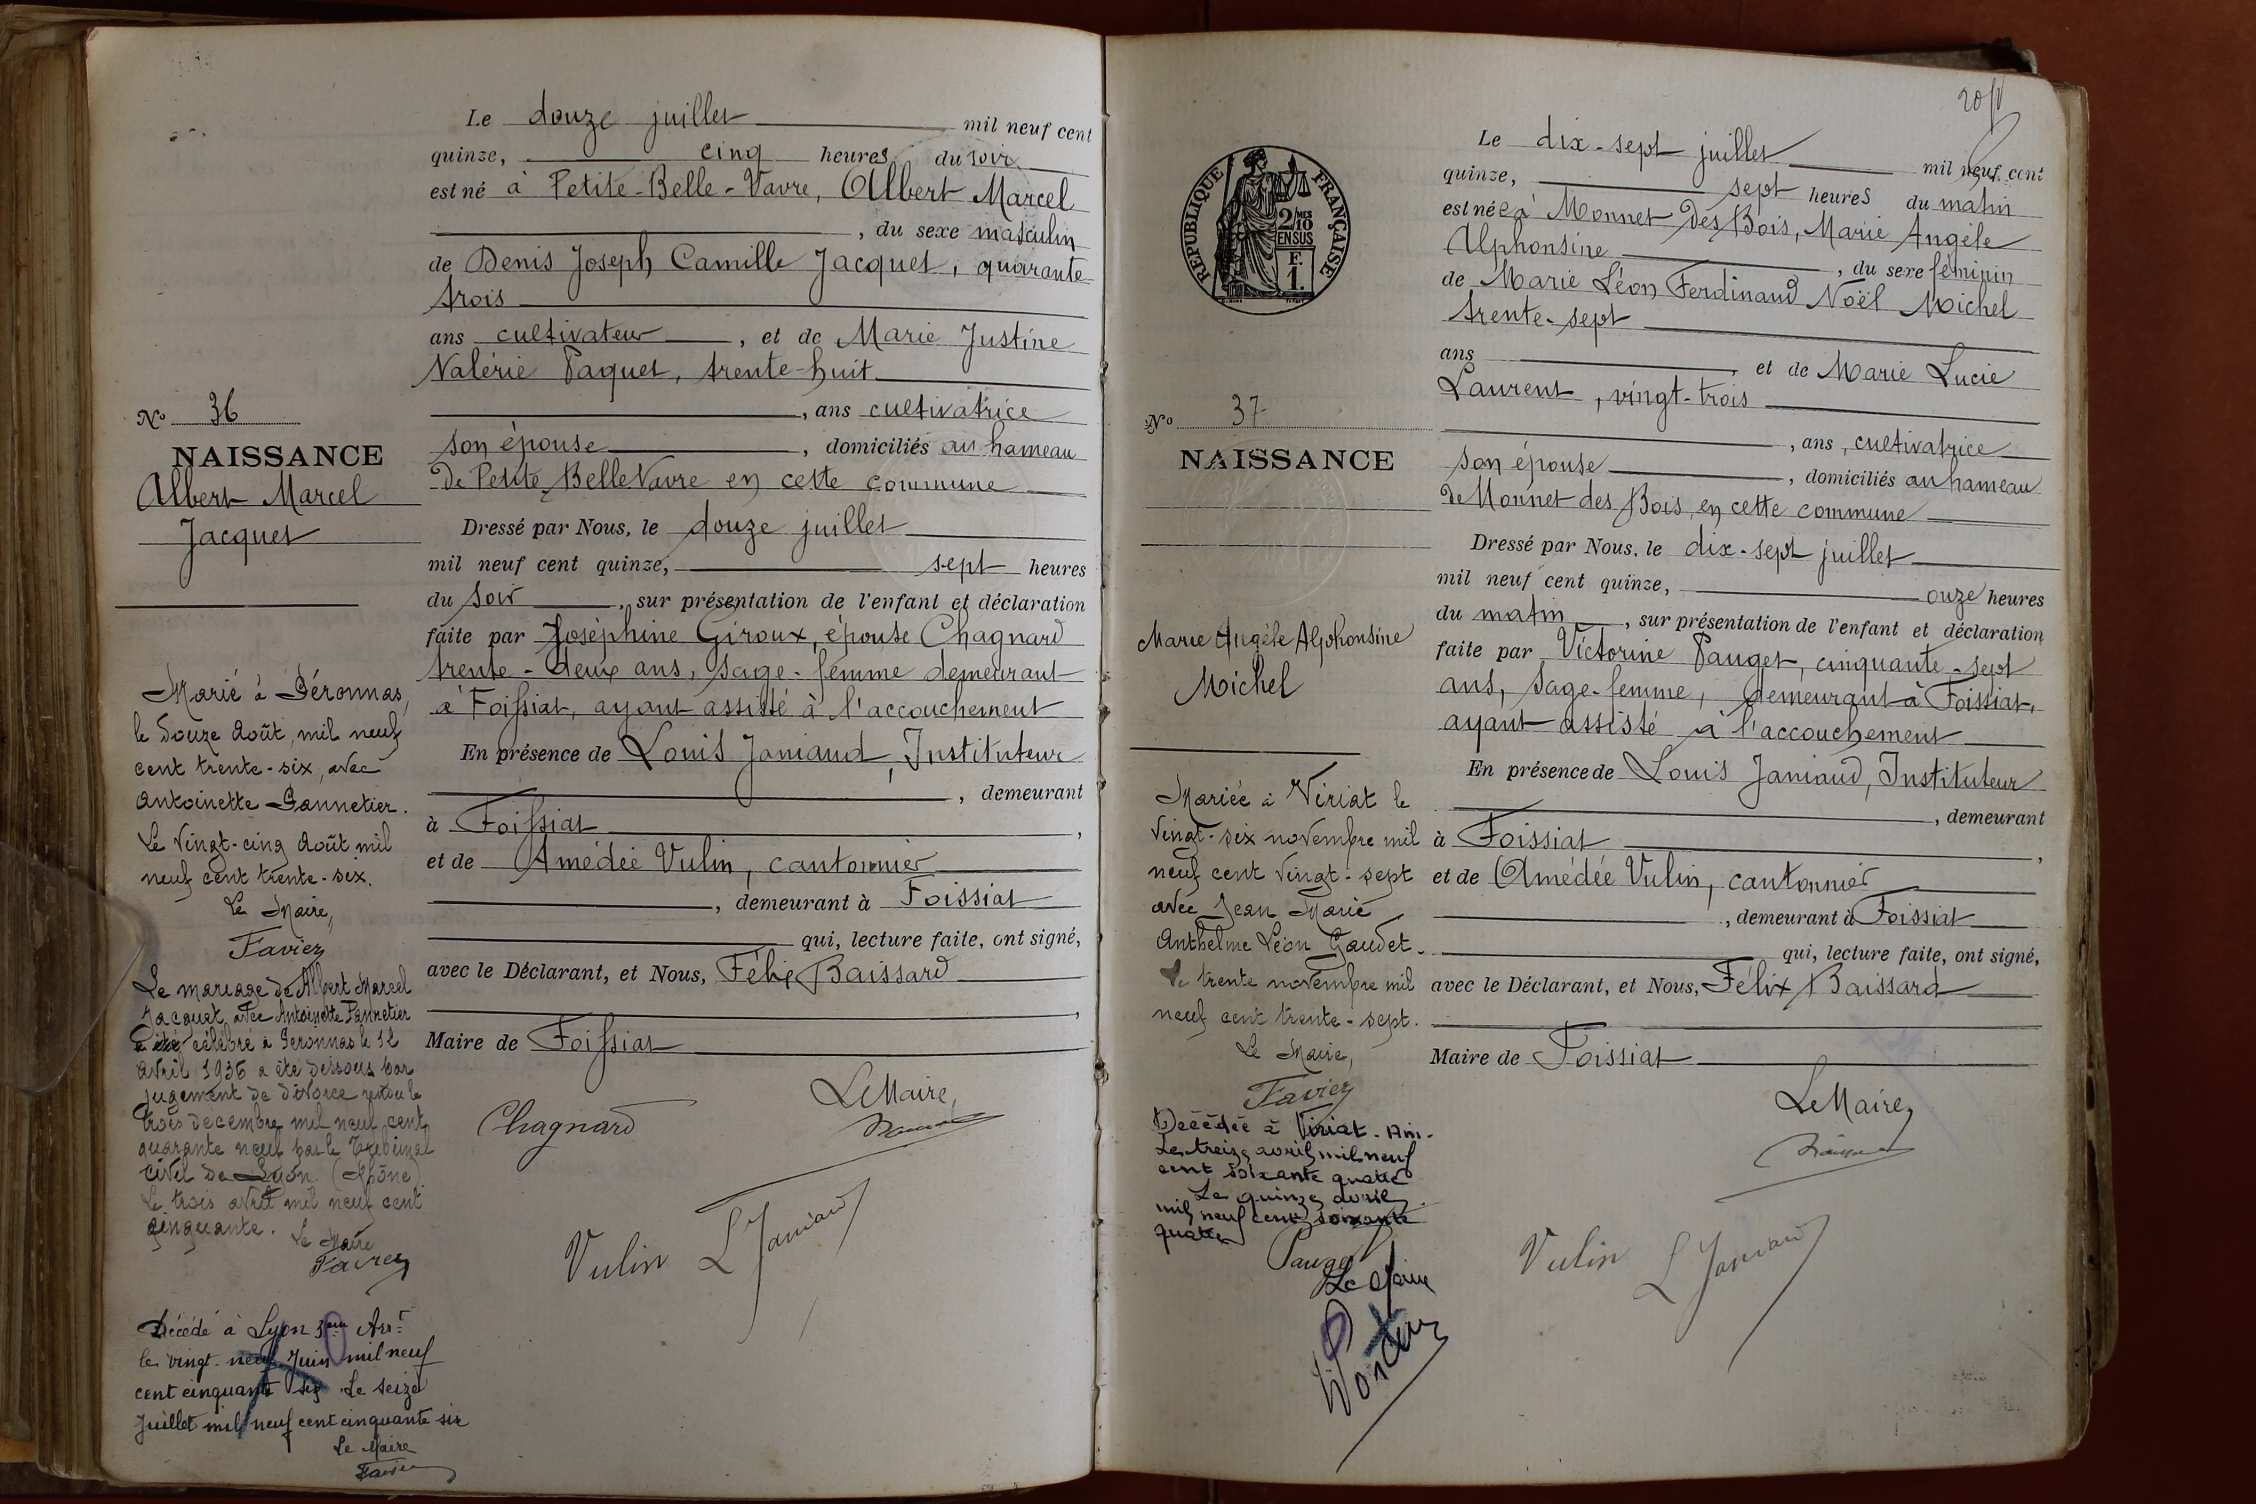 Le douze juillet mil neuf cent
quinze, cinq heures du soir
est né à Petite-Belle-Vavre, Albert Marcel
, du sexe masculin
de Denis Joseph Camille Jacquet, quarante-
trois
ans cultivateur , et de Marie Justine
Valérie Paquet, trente-huit
, ans cultivatrice
son épouse , domiciliés au hameau
de Petite Belle Vavre en cette commune
Dressé par Nous, le douze juillet
mil neuf cent quinze, sept heures
du soir , sur présentation de l'enfant et déclaration
faite par Joséphine Giroux, épouse Chagnard
trente-deux ans, sage-femme demeurant
à Foissiat, ayant assisté à l'accouchement
En présence de Louis Janiaud, Instituteur
, demeurant
à Foissiat ,
et de Amédée Vulin, cantonnier
, demeurant à Foissiat
qui, lecture faite, ont signé,
avec le Déclarant, et Nous, Félix Baissard
,
Maire de Foissiat
Le Maire,
Chagnard
Vulin L Janiaud
No 36
NAISSANCE
Albert Marcel
Jacquet
Marié à Péronnas,
le douze Août, mil neuf
cent trente-six, avec
Antoinette Pannetier.
Le vingt-cinq Août mil
neuf cent trente-six.
Le Maire,
Favier
Le mariage de Albert Marcel
Jacquet avec Antoinette Pannetier
a été célébré à Péronnas le 12
avril 1936 a été dissous par
jugement de divorce rendu le
trois décembre mil neuf cent
quarante neuf par le Tribunal
Civil de Lyon (Rhône)
Le trois avril mil neuf cent
cinquante. Le Maire
Favier
Décédé à Lyon 3eme Arrt
le vingt-neuf Juin mil neuf
cent cinquante six. Le seize
Juillet mil neuf cent cinquante six
Le Maire
Favier
RÉPUBLIQUE FRANÇAISE
2/10 MES
EN SUS
F.
1.
Le dix-sept juillet mil neuf cent
quinze, sept heures du matin
est née à Monnet des Bois, Marie Angèle
Alphonsine , du sexe féminin
de Marie Léon Ferdinand Noël Michel
trente-sept
ans , et de Marie Lucie
Laurent, vingt-trois
, ans, cultivatrice
son épouse , domiciliés au hameau
de Monnet des Bois, en cette commune
Dressé par Nous, le dix-sept juillet
mil neuf cent quinze, onze heures
du matin , sur présentation de l'enfant et déclaration
faite par Victorine Pauget, cinquante-sept
ans, sage-femme, demeurant à Foissiat,
ayant assisté à l'accouchement
En présence de Louis Janiaud, Instituteur
, demeurant
à Foissiat ,
et de Amédée Vulin, cantonnier
, demeurant à Foissiat
qui, lecture faite, ont signé,
avec le Déclarant, et Nous, Félix Baissard
Maire de Foissiat
Le Maire,
Vulin L Janiaud
No 37
NAISSANCE
Marie Angèle Alphonsine
Michel
Mariée à Viriat le
vingt-six novembre mil
neuf cent vingt-sept
avec Jean Marie
Anthelme Léon Gaudet.
Le trente novembre mil
neuf cent trente-sept.
Le Maire,
Favier
Décédée à Viriat-Ain-
Le treize avril mil neuf
cent soixante quatre
Le quinze avril
mil neuf cent soixante
quatre
Pauget
Le Maire